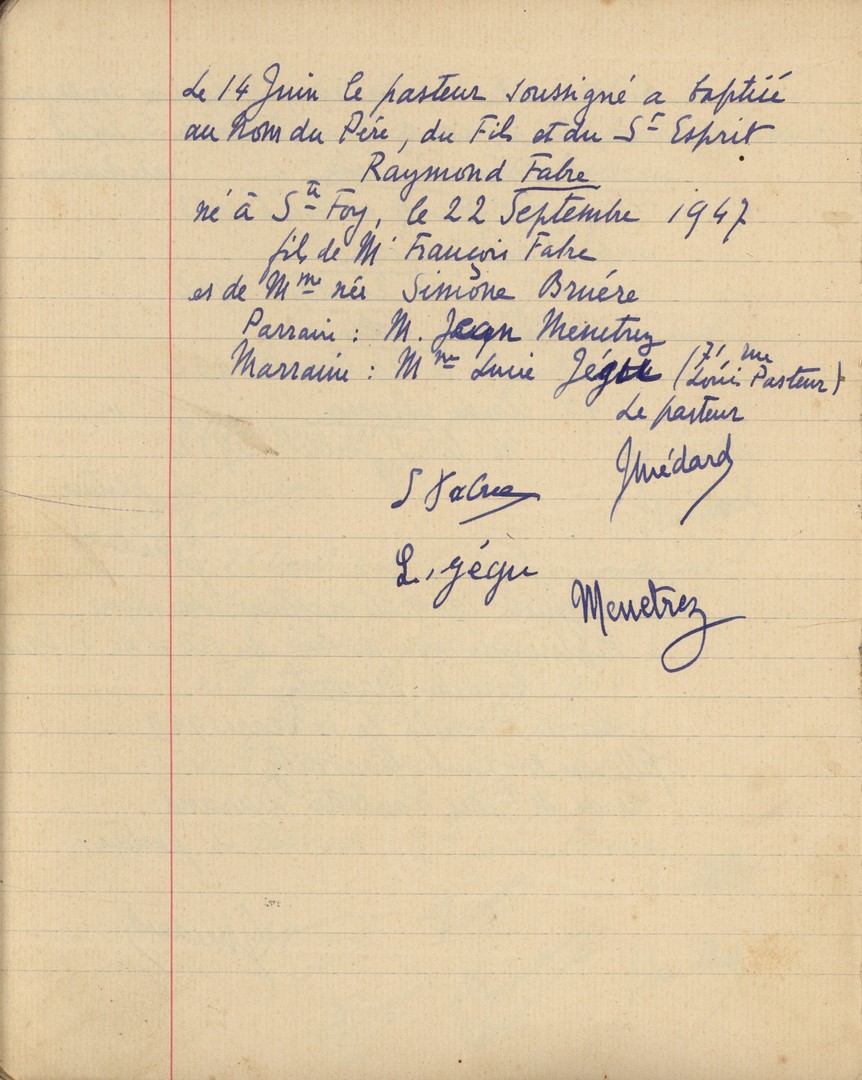 Le 14 Juin le pasteur soussigné a baptisé
au Nom du Père, du Fils et du St Esprit
Raymond Fabre
né à Ste Foy, le 22 Septembre 1947
fils de Mr François Fabre
et de Mme née Simone Bruére
Parrain : M. Jean Menetrez
Marraine : Mme Lucie Jégu (71 rue Louis Pasteur)
Le pasteur
JMédard
S Fabre
L. Jégu
Menetrez